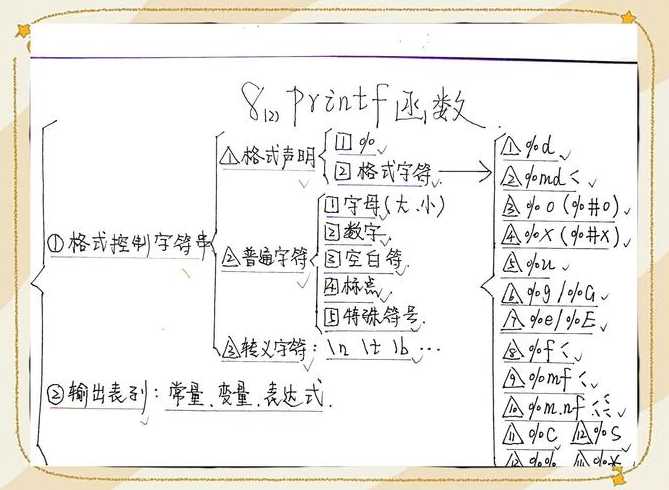 8.(2) printf函数
① 格式控制字符串
△1 格式声明
[1] %
[2] 格式字符
△2 普通字符
[1] 字母(大、小)
[2] 数字
[3] 空白符
[4] 标点
[5] 特殊符号
△3 转义字符: \n \t \b …
② 输出表列: 常量、变量、表达式.
△1 %d
△2 %md <
△3 %o (%#o)
△4 %X (%#X)
△5 %u
△6 %g/%G
△7 %e/%E
△8 %f <
△9 %mf <
△10 %m.nf
△11 %C △12 %S
%% %*